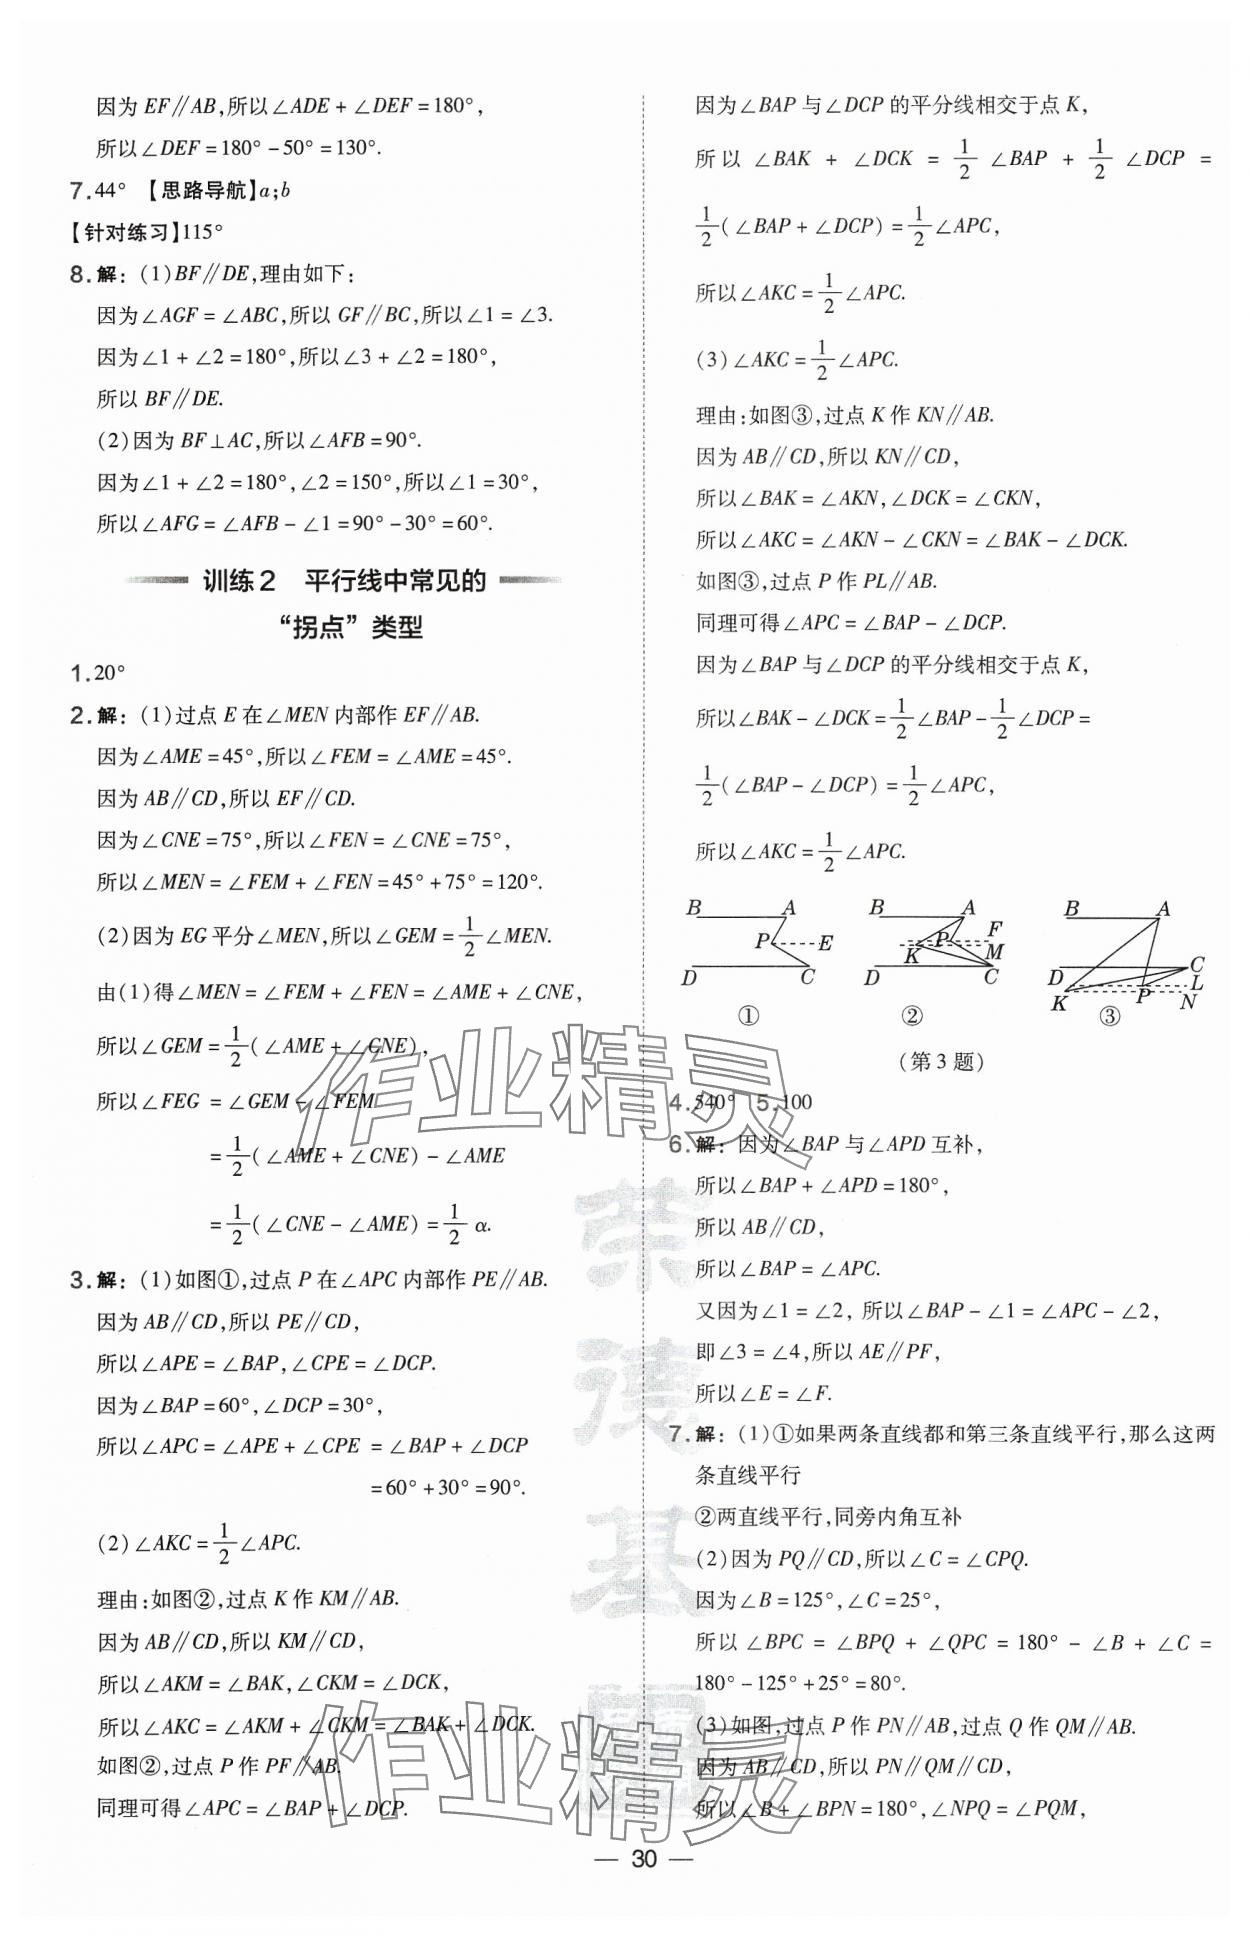 因为EF∥AB,所以∠ADE+∠DEF=180°,
所以∠DEF=180°-50°=130°.
7.44° 【思路导航】a;b
【针对练习】115°
8.解:(1)BF∥DE,理由如下:
因为∠AGF=∠ABC,所以GF∥BC,所以∠1=∠3.
因为∠1+∠2=180°,所以∠3+∠2=180°,
所以BF∥DE.
(2)因为BF⊥AC,所以∠AFB=90°.
因为∠1+∠2=180°,∠2=150°,所以∠1=30°,
所以∠AFG=∠AFB-∠1=90°-30°=60°.
训练2 平行线中常见的
“拐点”类型
1.20°
2.解:(1)过点E在∠MEN内部作EF∥AB.
因为∠AME=45°,所以∠FEM=∠AME=45°.
因为AB∥CD,所以EF∥CD.
因为∠CNE=75°,所以∠FEN=∠CNE=75°,
所以∠MEN=∠FEM+∠FEN=45°+75°=120°.
(2)因为EG平分∠MEN,所以∠GEM=1/2∠MEN.
由(1)得∠MEN=∠FEM+∠FEN=∠AME+∠CNE,
所以∠GEM=1/2(∠AME+∠CNE),
所以∠FEG=∠GEM-∠FEM
=1/2(∠AME+∠CNE)-∠AME
=1/2(∠CNE-∠AME)=1/2α.
3.解:(1)如图①,过点P在∠APC内部作PE∥AB.
因为AB∥CD,所以PE∥CD,
所以∠APE=∠BAP,∠CPE=∠DCP.
因为∠BAP=60°,∠DCP=30°,
所以∠APC=∠APE+∠CPE=∠BAP+∠DCP
=60°+30°=90°.
(2)∠AKC=1/2∠APC.
理由:如图②,过点K作KM∥AB.
因为AB∥CD,所以KM∥CD,
所以∠AKM=∠BAK,∠CKM=∠DCK,
所以∠AKC=∠AKM+∠CKM=∠BAK+∠DCK.
如图②,过点P作PF∥AB.
同理可得∠APC=∠BAP+∠DCP.
因为∠BAP与∠DCP的平分线相交于点K,
所以∠BAK+∠DCK=1/2∠BAP+1/2∠DCP=
1/2(∠BAP+∠DCP)=1/2∠APC,
所以∠AKC=1/2∠APC.
(3)∠AKC=1/2∠APC.
理由:如图③,过点K作KN∥AB.
因为AB∥CD,所以KN∥CD,
所以∠BAK=∠AKN,∠DCK=∠CKN,
所以∠AKC=∠AKN-∠CKN=∠BAK-∠DCK.
如图③,过点P作PL∥AB.
同理可得∠APC=∠BAP-∠DCP.
因为∠BAP与∠DCP的平分线相交于点K,
所以∠BAK-∠DCK=1/2∠BAP-1/2∠DCP=
1/2(∠BAP-∠DCP)=1/2∠APC,
所以∠AKC=1/2∠APC.
B A B A B A
P E K P F M
D C D C D C
K P L N
① ② ③
(第3题)
4.540° 5.100
6.解:因为∠BAP与∠APD互补,
所以∠BAP+∠APD=180°,
所以AB∥CD,
所以∠BAP=∠APC.
又因为∠1=∠2,所以∠BAP-∠1=∠APC-∠2,
即∠3=∠4,所以AE∥PF,
所以∠E=∠F.
7.解:(1)①如果两条直线都和第三条直线平行,那么这两
条直线平行
②两直线平行,同旁内角互补
(2)因为PQ∥CD,所以∠C=∠CPQ.
因为∠B=125°,∠C=25°,
所以∠BPC=∠BPQ+∠QPC=180°-∠B+∠C=
180°-125°+25°=80°.
(3)如图,过点P作PN∥AB,过点Q作QM∥AB.
因为AB∥CD,所以PN∥QM∥CD,
所以∠B+∠BPN=180°,∠NPQ=∠PQM,
— 30 —
作业精灵
荣德基
作业精灵